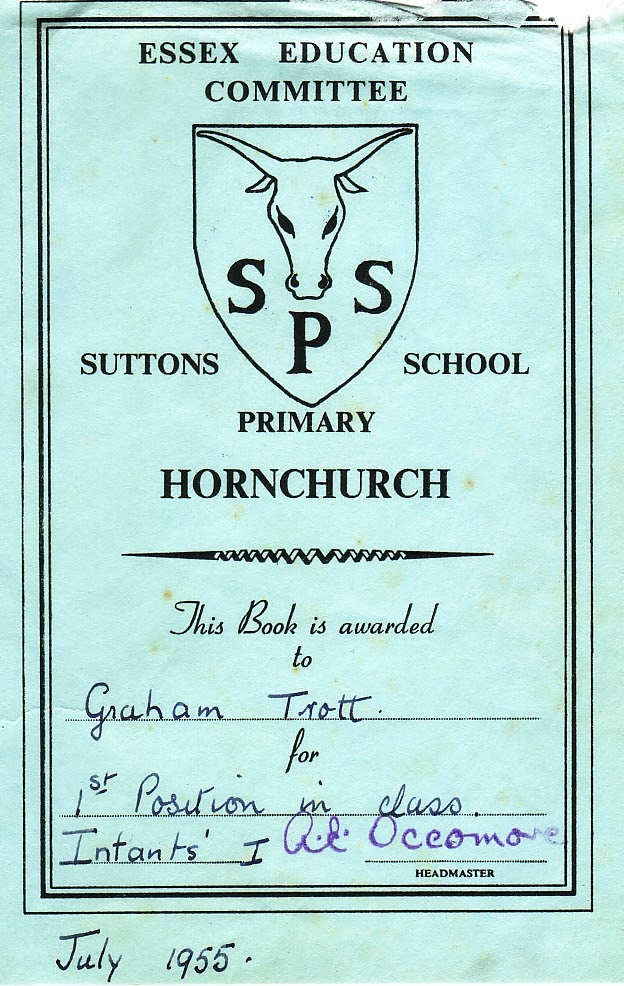 ESSEX EDUCATION
COMMITTEE
S S
P
SUTTONS SCHOOL
PRIMARY
HORNCHURCH
This Book is awarded
to
Graham Trott.
for
1st Position in class.
Infants' I A.E. Occomore
HEADMASTER
July 1955.